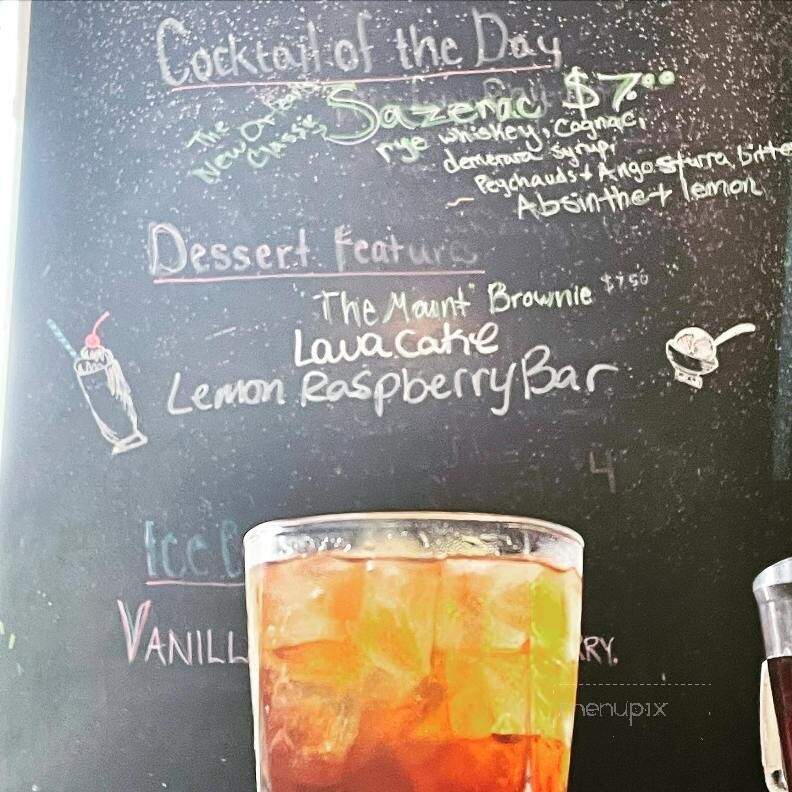 Cocktail of the Day
The New Orleans Classic Sazerac $7.00
rye whiskey, Cognac,
demerara syrup,
Peychauds + Angosturra bitte
Absinthe + lemon
Dessert Features
"The Mount" Brownie $7.50
Lava Cake
Lemon Raspberry Bar
4
Ice C
VANILL RRY.
menupix